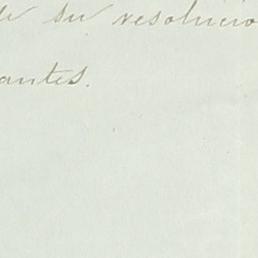 de su resolucio
antes.